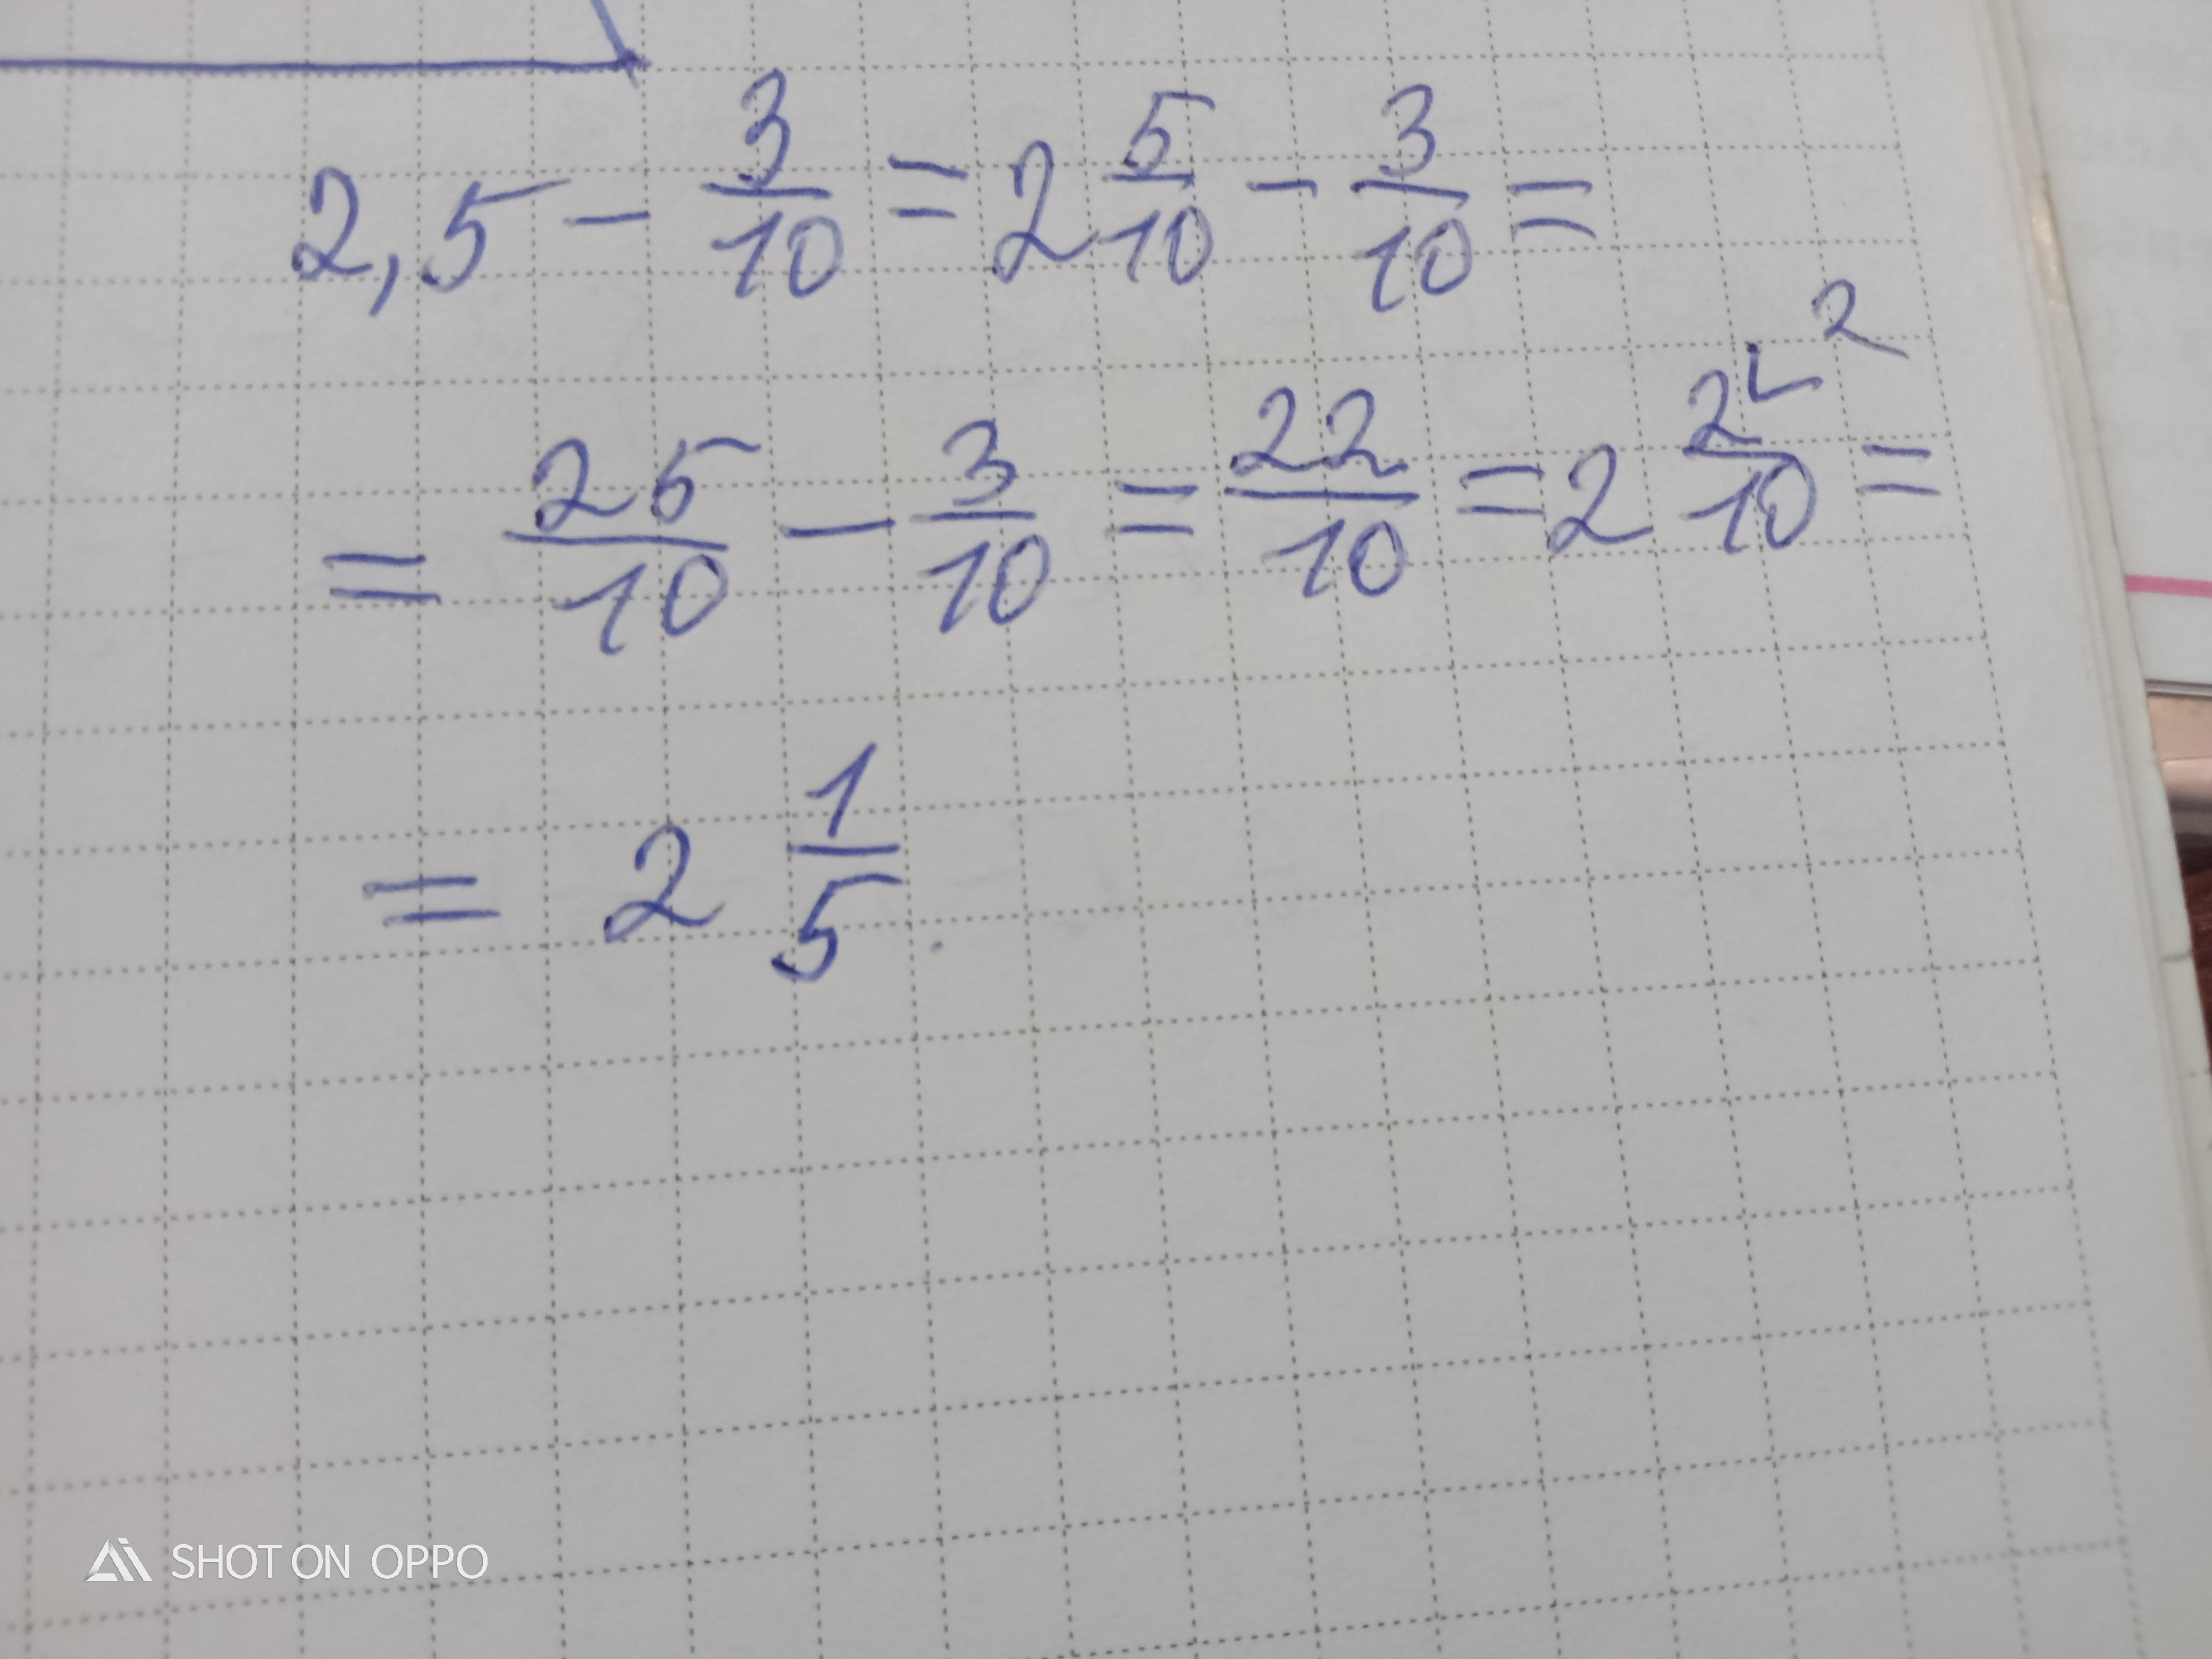 2,5 - 3/10 = 2 5/10 - 3/10 =
= 25/10 - 3/10 = 22/10 = 2 2/10 ∟2 =
= 2 1/5
SHOT ON OPPO